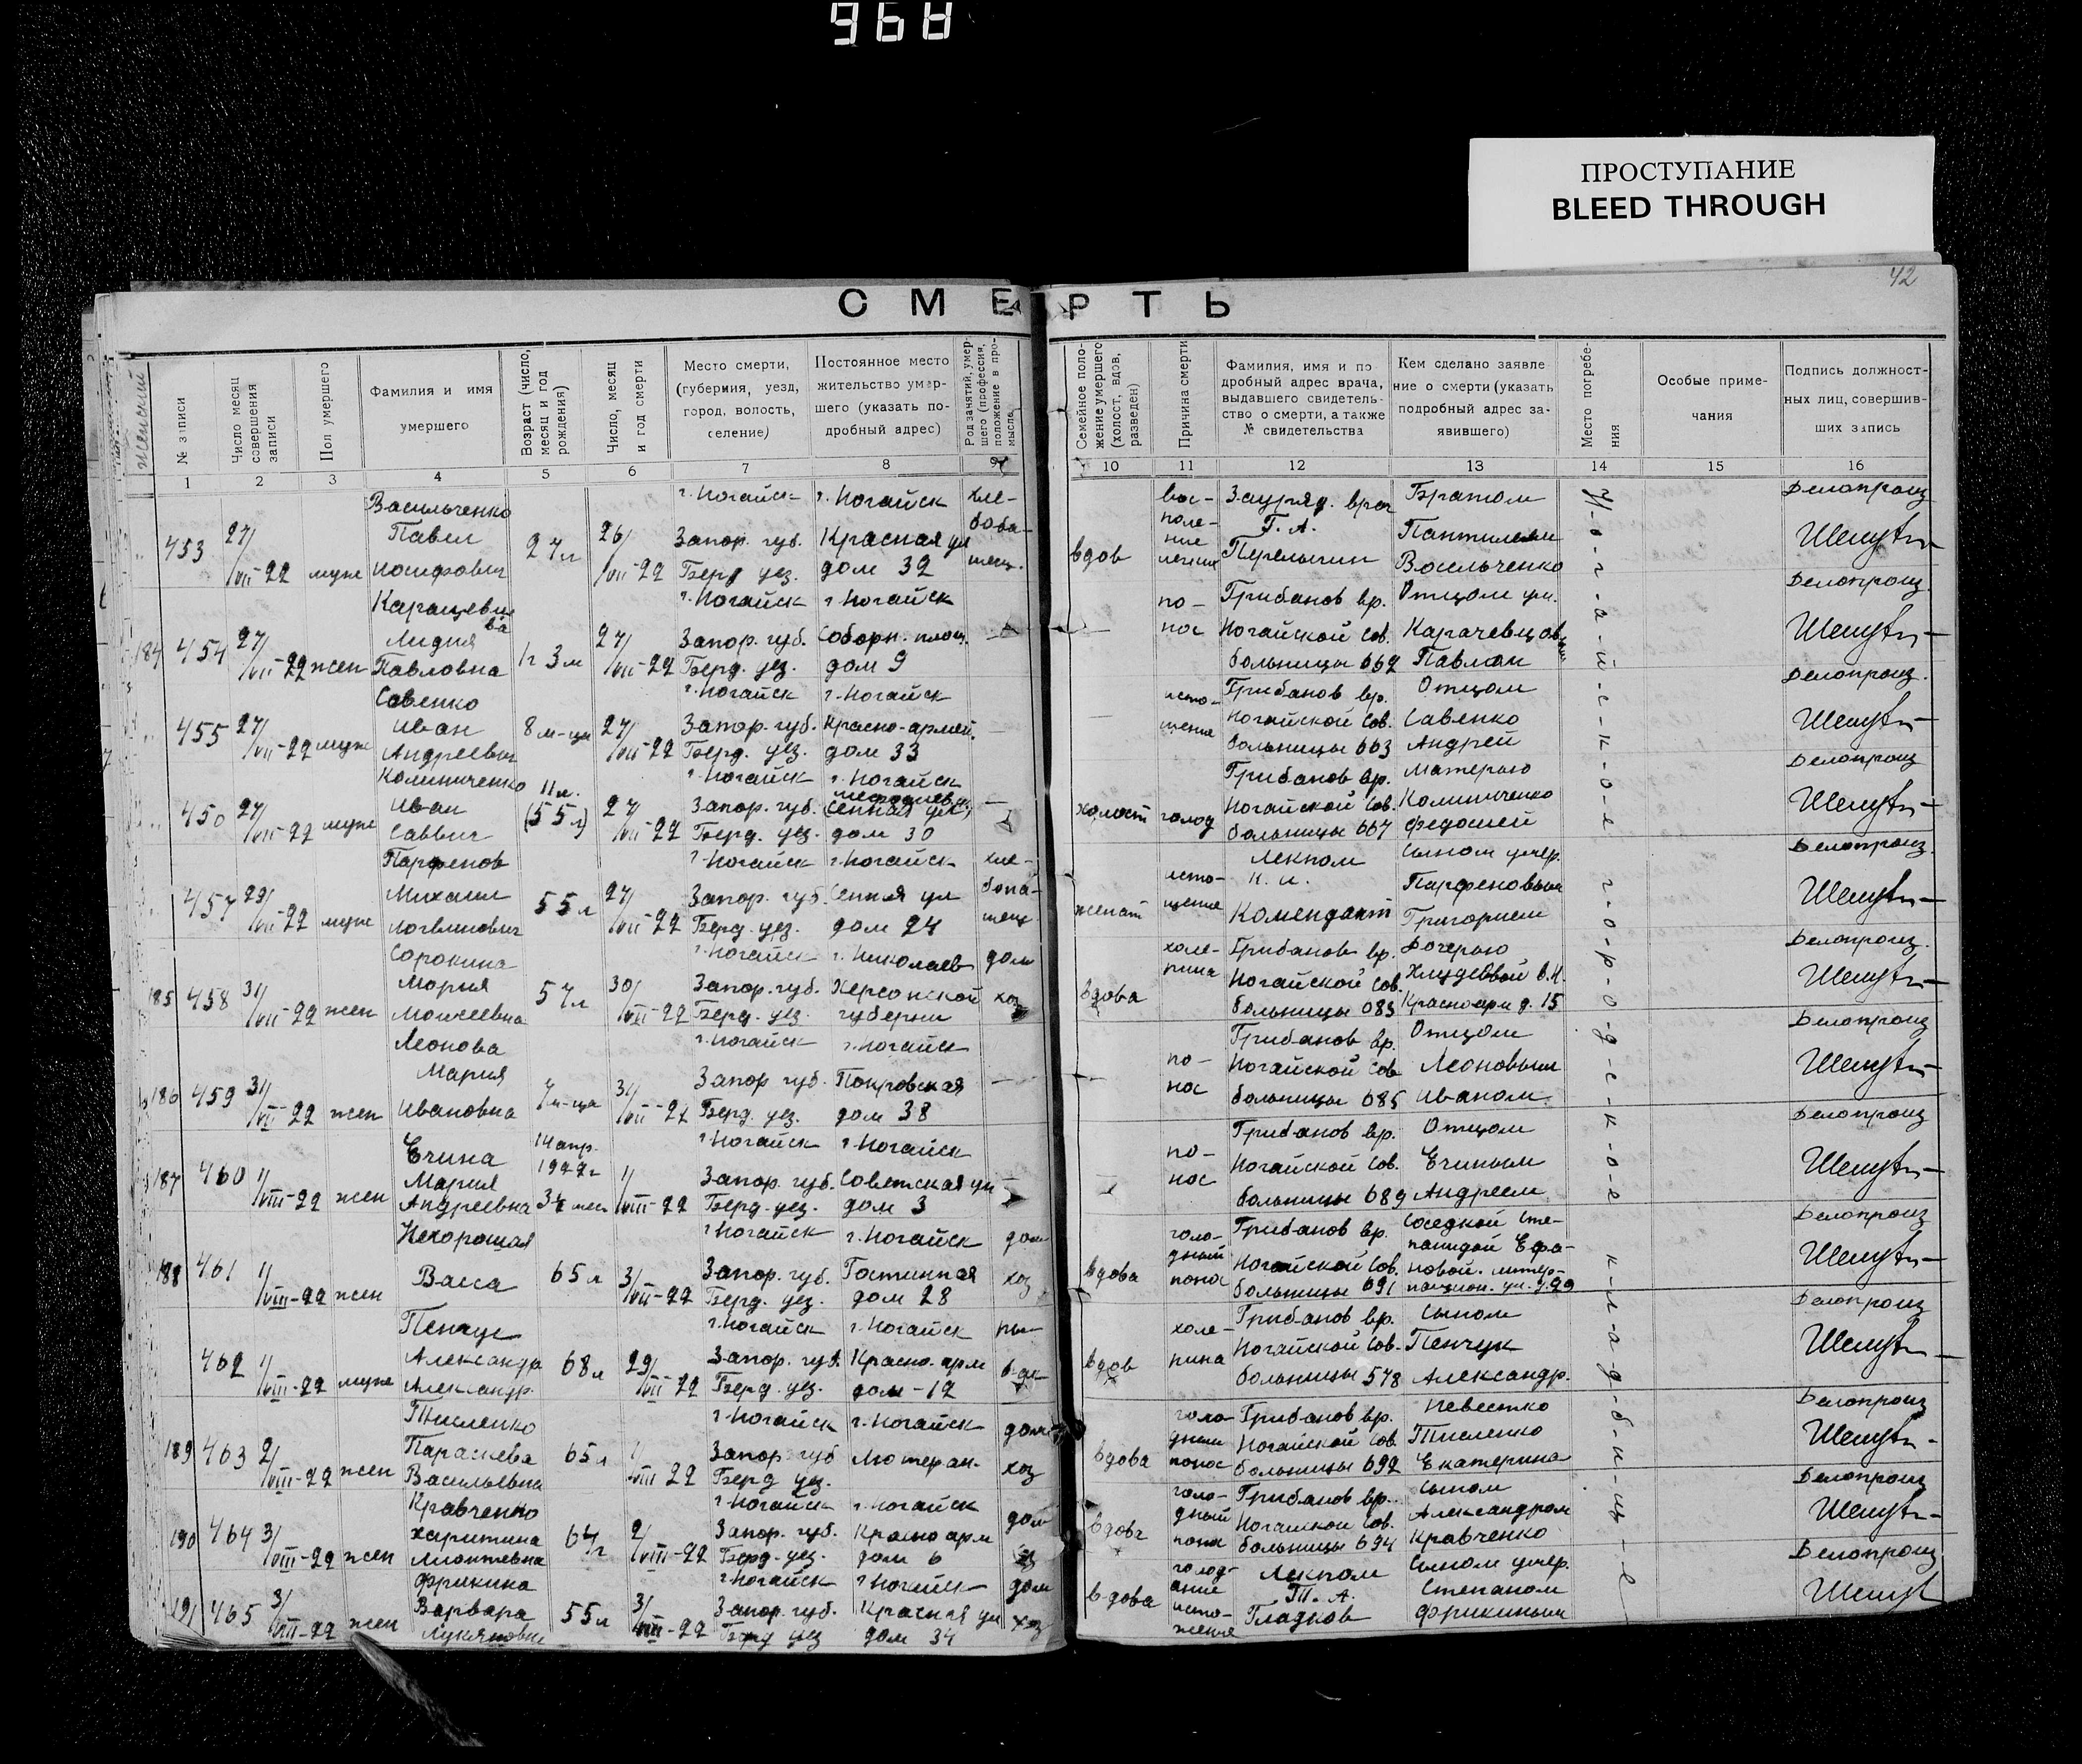 968
ПРОСТУПАНИЕ
BLEED THROUGH
42
СМЕРТЬ
женский
№ записи
Число месяц совершения записи
Пол умершего
Фамилия и имя умершего
Возраст (число, месяц и год рождения)
Число, месяц и год смерти
Место смерти, (губерния, уезд, город, волость, селение)
Постоянное место жительство умершего (указать подробный адрес)
Род занятий, умершего (профессия, положение в промысле)
Семейное положение умершего (холост, вдов, разведен)
Причина смерти
Фамилия, имя и подробный адрес врача, выдавшего свидетельство о смерти, а также № свидетельства
Кем сделано заявление о смерти (указать подробный адрес заявившего)
Место погребения
Особые примечания
Подпись должностных лиц, совершивших запись
1 2 3 4 5 6 7 8 9 10 11 12 13 14 15 16
453 27/VII-22 муж Васильченко Павел Иосифович 27 л 26/VII-22 г. Ногайск Запор. губ. Берд. уез. г. Ногайск Красная ул дом 32 хлебопашец. вдов воспаление легких Зауряд. врач Г. А. Перельгин Братом Пантилеем Васильченко Делопроиз
184 454 27/VII-22 жен Карачевцева Лидия Павловна 1 г 3 м 27/VII-22 г. Ногайск Запор. губ. Берд. уез. г. Ногайск Соборн. площ. дом 9 — — понос Грибанов вр. Ногайской Сов. больницы 662 Отцом ум. Карачевцовым Павлом Делопроиз
455 27/VII-22 муж Савенко Иван Андреевич 8 м-ца 27/VII-22 г. Ногайск Запор. губ. Берд. уез. г. Ногайск Красно-армей. дом 33 — истощения Грибанов вр. Ногайской Сов. больницы 663 Отцом Савенко Андрей Делопроиз.
450 27/VII-22 муж Калиниченко Иван Саввич 11 л. (55 л) 27/VII-22 г. Ногайск Запор. губ. Берд. уез. г. Ногайск Сенная ул, дом 30 — холост голод Грибанов вр. Ногайской Сов. больницы 667 Матерью Калиниченко Федосией Делопроиз
457 29/VII-22 муж Парфенов Михаил Логвинович 55 л 27/VII-22 г. Ногайск Запор. губ. Берд. уез. г. Ногайск Сенная ул дом 24 хлебопашец женат истощение Лекпом Н. И. Комендант Сыном умер. Парфеновым Григорием Делопроиз.
185 458 31/VII-22 жен Сорокина Мария Моисеевна 57 л 30/VII-22 г. Ногайск Запор. губ. Берд. уез. г. Николаев Херсонской губерни дом хоз вдова холерина Грибанов вр. Ногайской Сов. больницы 683 Дочерью Хлудеевой В.Н. Красноарм д. 15 Делопроиз.
186 459 31/VII-22 жен Леонова Мария Ивановна 7 м-ца 31/VII-22 г. Ногайск Запор губ. Берд. уез. г. Ногайск Покровская дом 38 — понос Грибанов вр. Ногайской Сов больницы 685 Отцом Леоновым Иваном. Делопроиз
187 460 1/VIII-22 жен Ечина Мария Андреевна 14 апр. 1922 г 3½ мес 1/VIII-22 г. Ногайск Запор. губ. Берд. уез. г. Ногайск Советская ул дом 3 — понос Грибанов вр. Ногайской Сов. больницы 689 Отцом Ечиным Андреем Делопроиз
188 461 1/VIII-22 жен Нехорошая Васса 65 л 31/VII-22 г. Ногайск Запор. губ. Берд. уез. г. Ногайск Гостинная дом 28 дом хоз вдова голодный понос Грибанов вр. Ногайской Сов. больницы 691 Соседкой Степанидой Ефановой. интернацион. ул. д. 29 Делопроиз
462 1/VIII-22 муж Пенчук Александр Александр. 68 л 29/VII-22 г. Ногайск Запор. губ. Берд. уез. г. Ногайск Красно-арм дом-12 вдов холерина Грибанов вр. Ногайской Сов. больницы 578 Сыном Пенчук Александр. Делопроиз
189 463 2/VIII-22 жен Тисленко Параскева Васильевна 65 л 1/VIII 22 г. Ногайск Запор губ Берд уез. г. Ногайск Лютеран. дом хоз вдова голодный понос Грибанов вр. Ногайской Сов больницы 692 Невестко Тисленко Екатерина Делопроиз
190 464 3/VIII-22 жен Кравченко Харитина Леонтевна 64 г 2/VIII-22 г. Ногайск Запор. губ. Берд. уез. г. Ногайск Красно арм дом 6 дом хоз вдова голодный понос Грибанов вр. Ногайской Сов. больницы 694 Сыном Александром Кравченко Делопроиз
191 465 3/VIII-22 жен Фрикина Варвара Лукяновна 55 л 3/VIII-22 г. Ногайск Запор. губ. Берд уез г Ногайск Красная ул дом 34 дом хоз вдова голодание истощения Лекпом Т. А. Гладков Сыном умер. Степаном Фрикиным Делопроиз
Н-о-г-а-й-с-к-о-е г-о-р-о-д-с-к-о-е к-л-а-д-б-и-щ-е